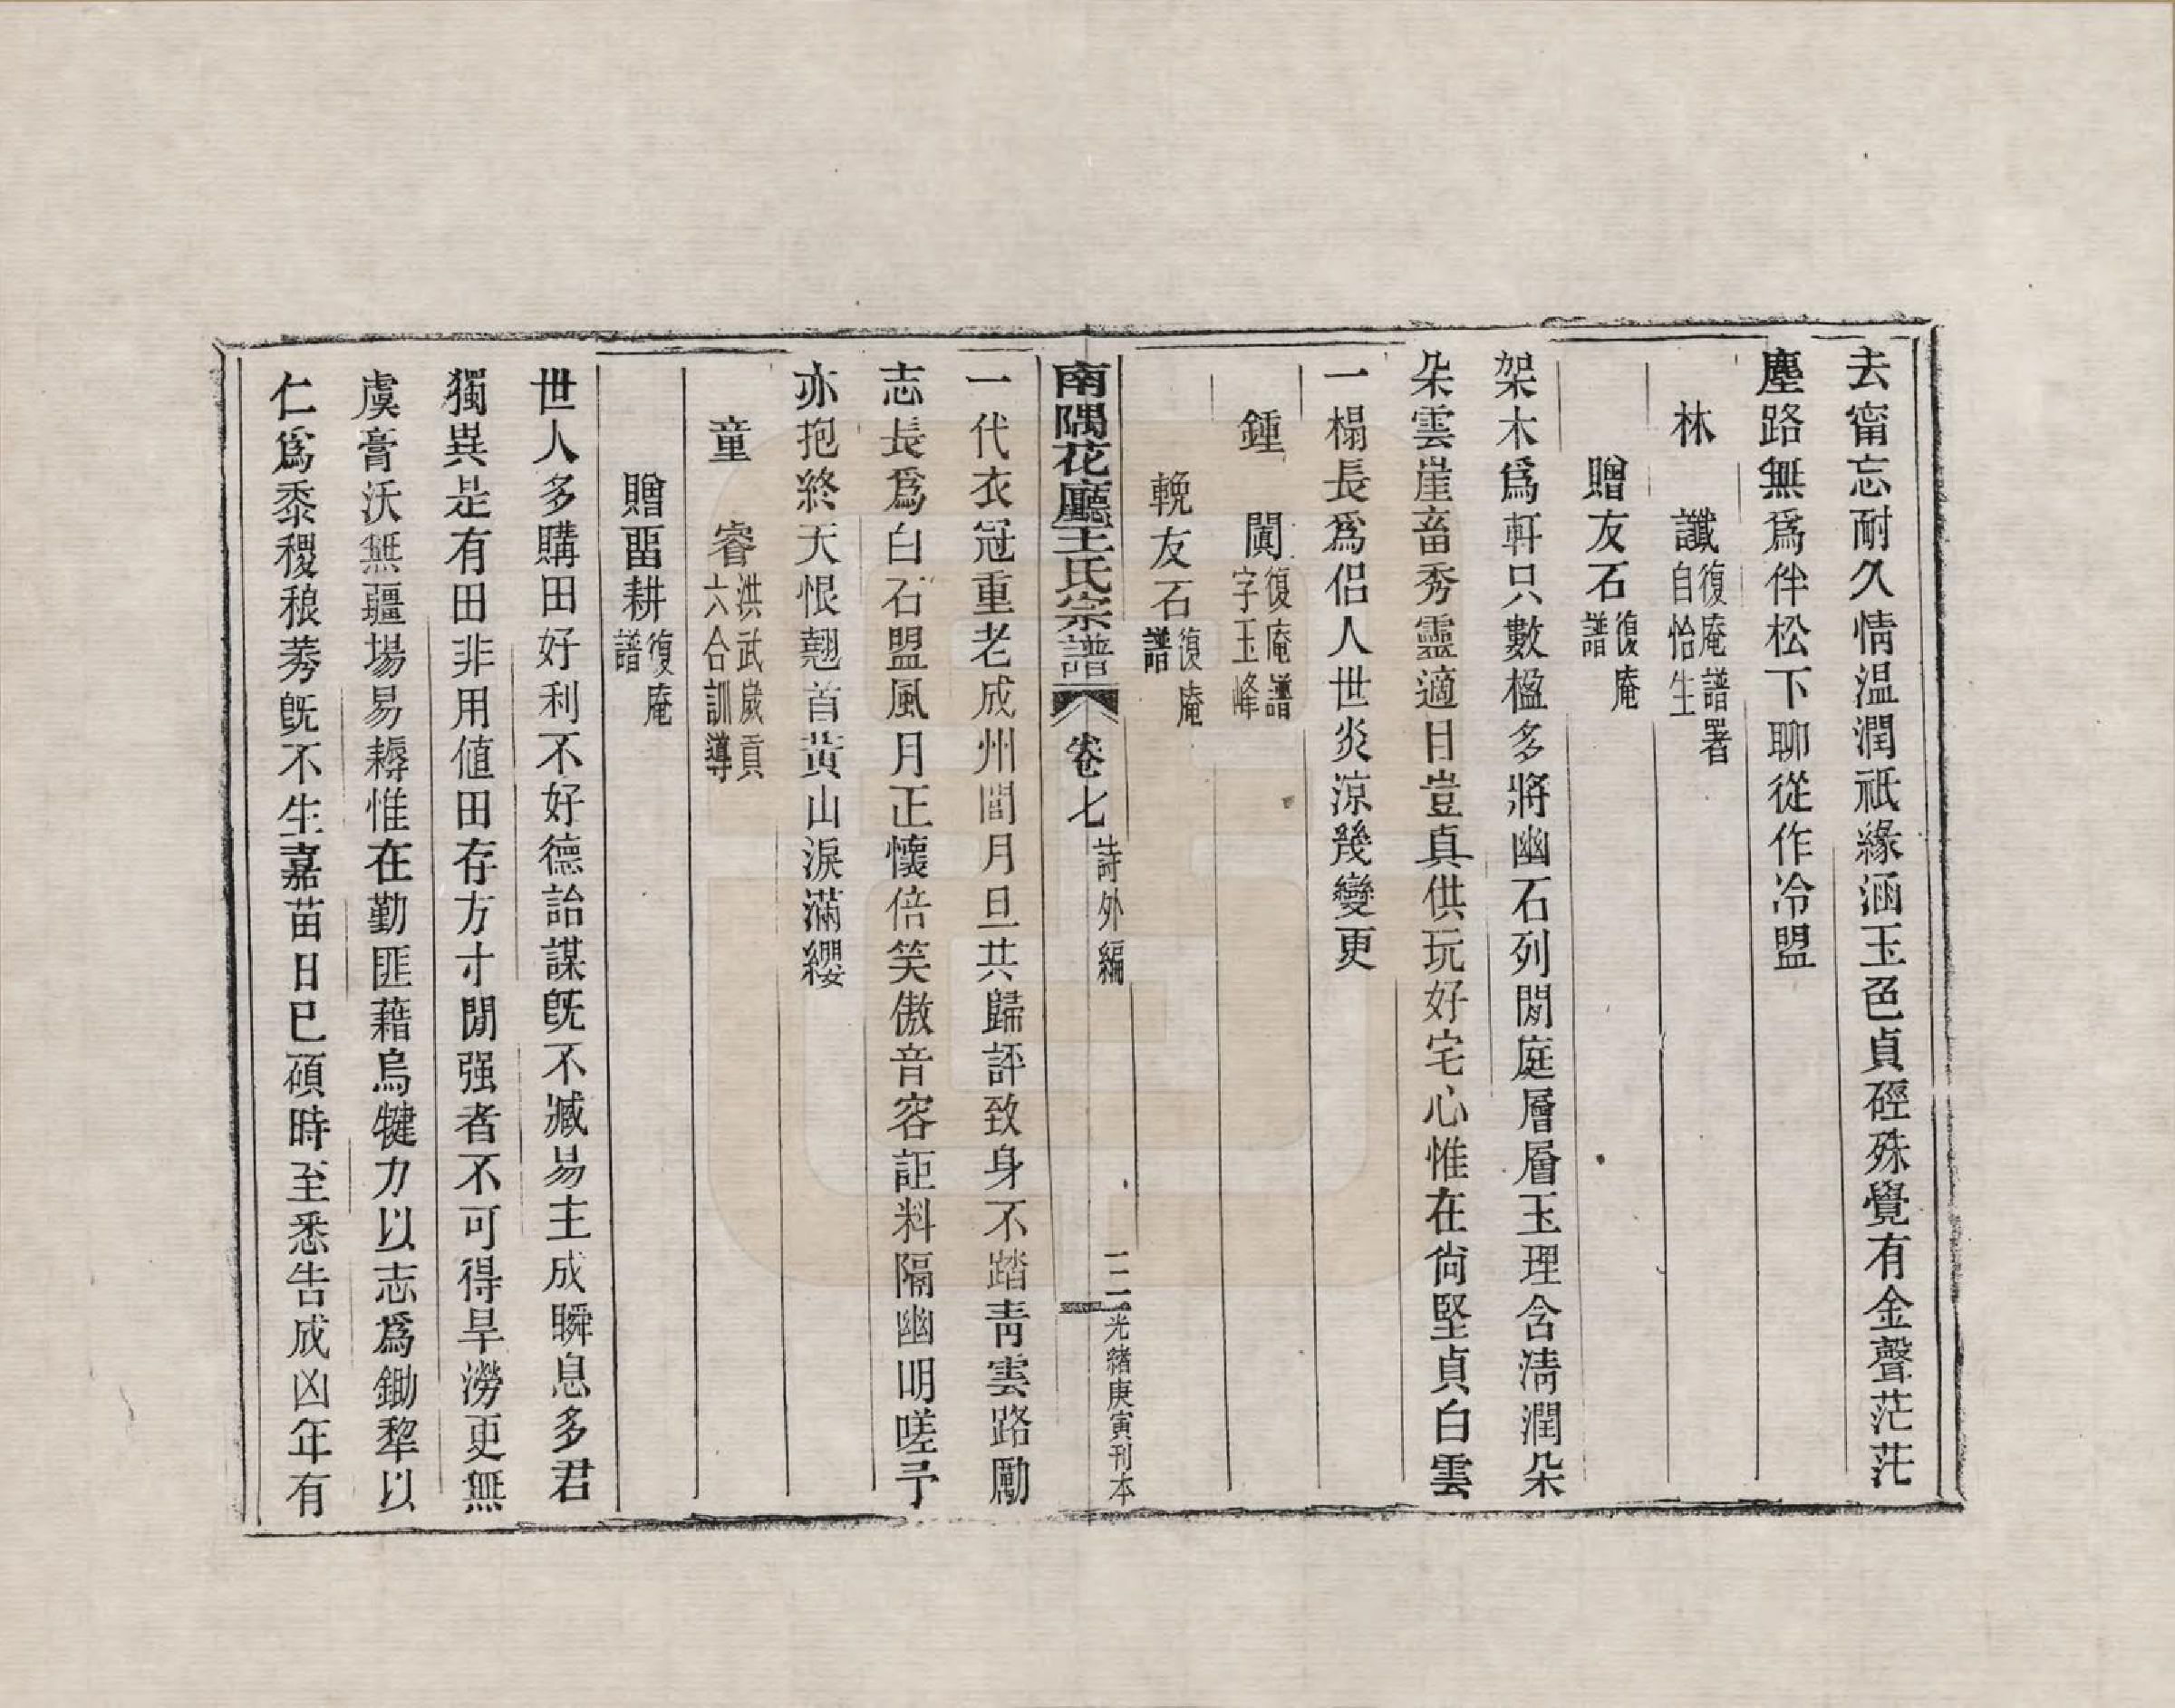 去甯忘耐久情温潤祇緣涵玉色貞硜殊覺有金聲茫茫
塵路無爲伴松下聊從作冷盟
林　讖復庵譜署自怡生
贈友石復庵譜
架木爲軒只數楹多將幽石列閒庭層層玉理含清潤朵
朵雲崖畜秀靈適目豈真供玩好宅心惟在尚堅貞白雲
一榻長爲侶人世炎涼幾變更
鍾　闃復庵譜字玉峰
輓友石復庵譜
南隅花廳王氏宗譜　卷七　詩外編　二二　光緒庚寅刊本
一代衣冠重老成州閭月旦共歸評致身不踏靑雲路勵
志長爲白石盟風月正懷倍笑傲音容詎料隔幽明嗟予
亦抱終天恨翹首黃山淚滿纓
童　睿洪武歲貢六合訓導
贈畱耕復庵譜
世人多購田好利不好德詒謀旣不臧易主成瞬息多君
獨異是有田非用値田存方寸閒强者不可得旱澇更無
虞膏沃無疆場易耨惟在勤匪藉烏犍力以志爲鋤犂以
仁爲黍稷稂莠旣不生嘉苗日已碩時至悉告成凶年有